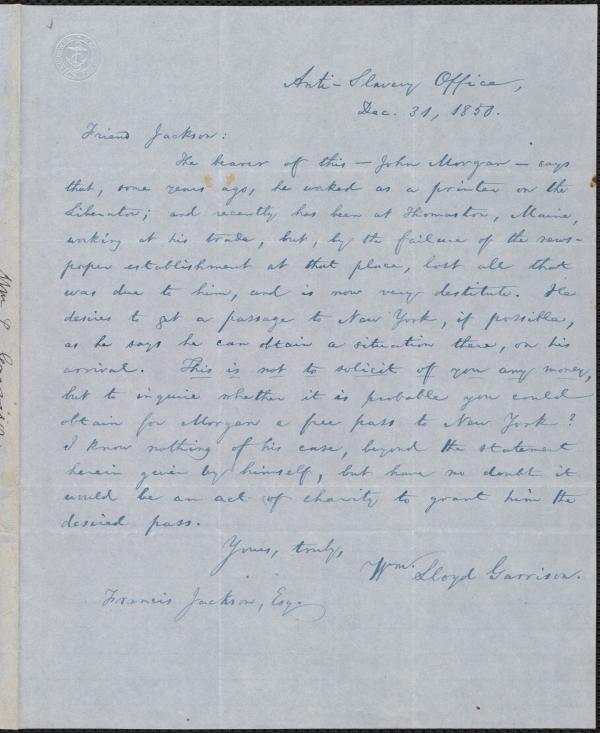 Anti-Slavery Office,
Dec. 31, 1850.
Friend Jackson:
The bearer of this — John Morgan — says
that, some years ago, he worked as a printer on the
Liberator; and recently has been at Thomaston, Maine,
working at his trade, but, by the failure of the news-
paper establishment at that place, lost all that
was due to him, and is now very destitute. He
desires to get a passage to New York, if possible,
as he says he can obtain a situation there, on his
arrival. This is not to solicit of you any money,
but to inquire whether it is probable you could
obtain for Morgan a free pass to New York?
I know nothing of his case, beyond the statement
herein given by himself, but have no doubt it
would be an act of charity to grant him the
desired pass.
Yours, truly,
Wm. Lloyd Garrison.
Francis Jackson, Esq.